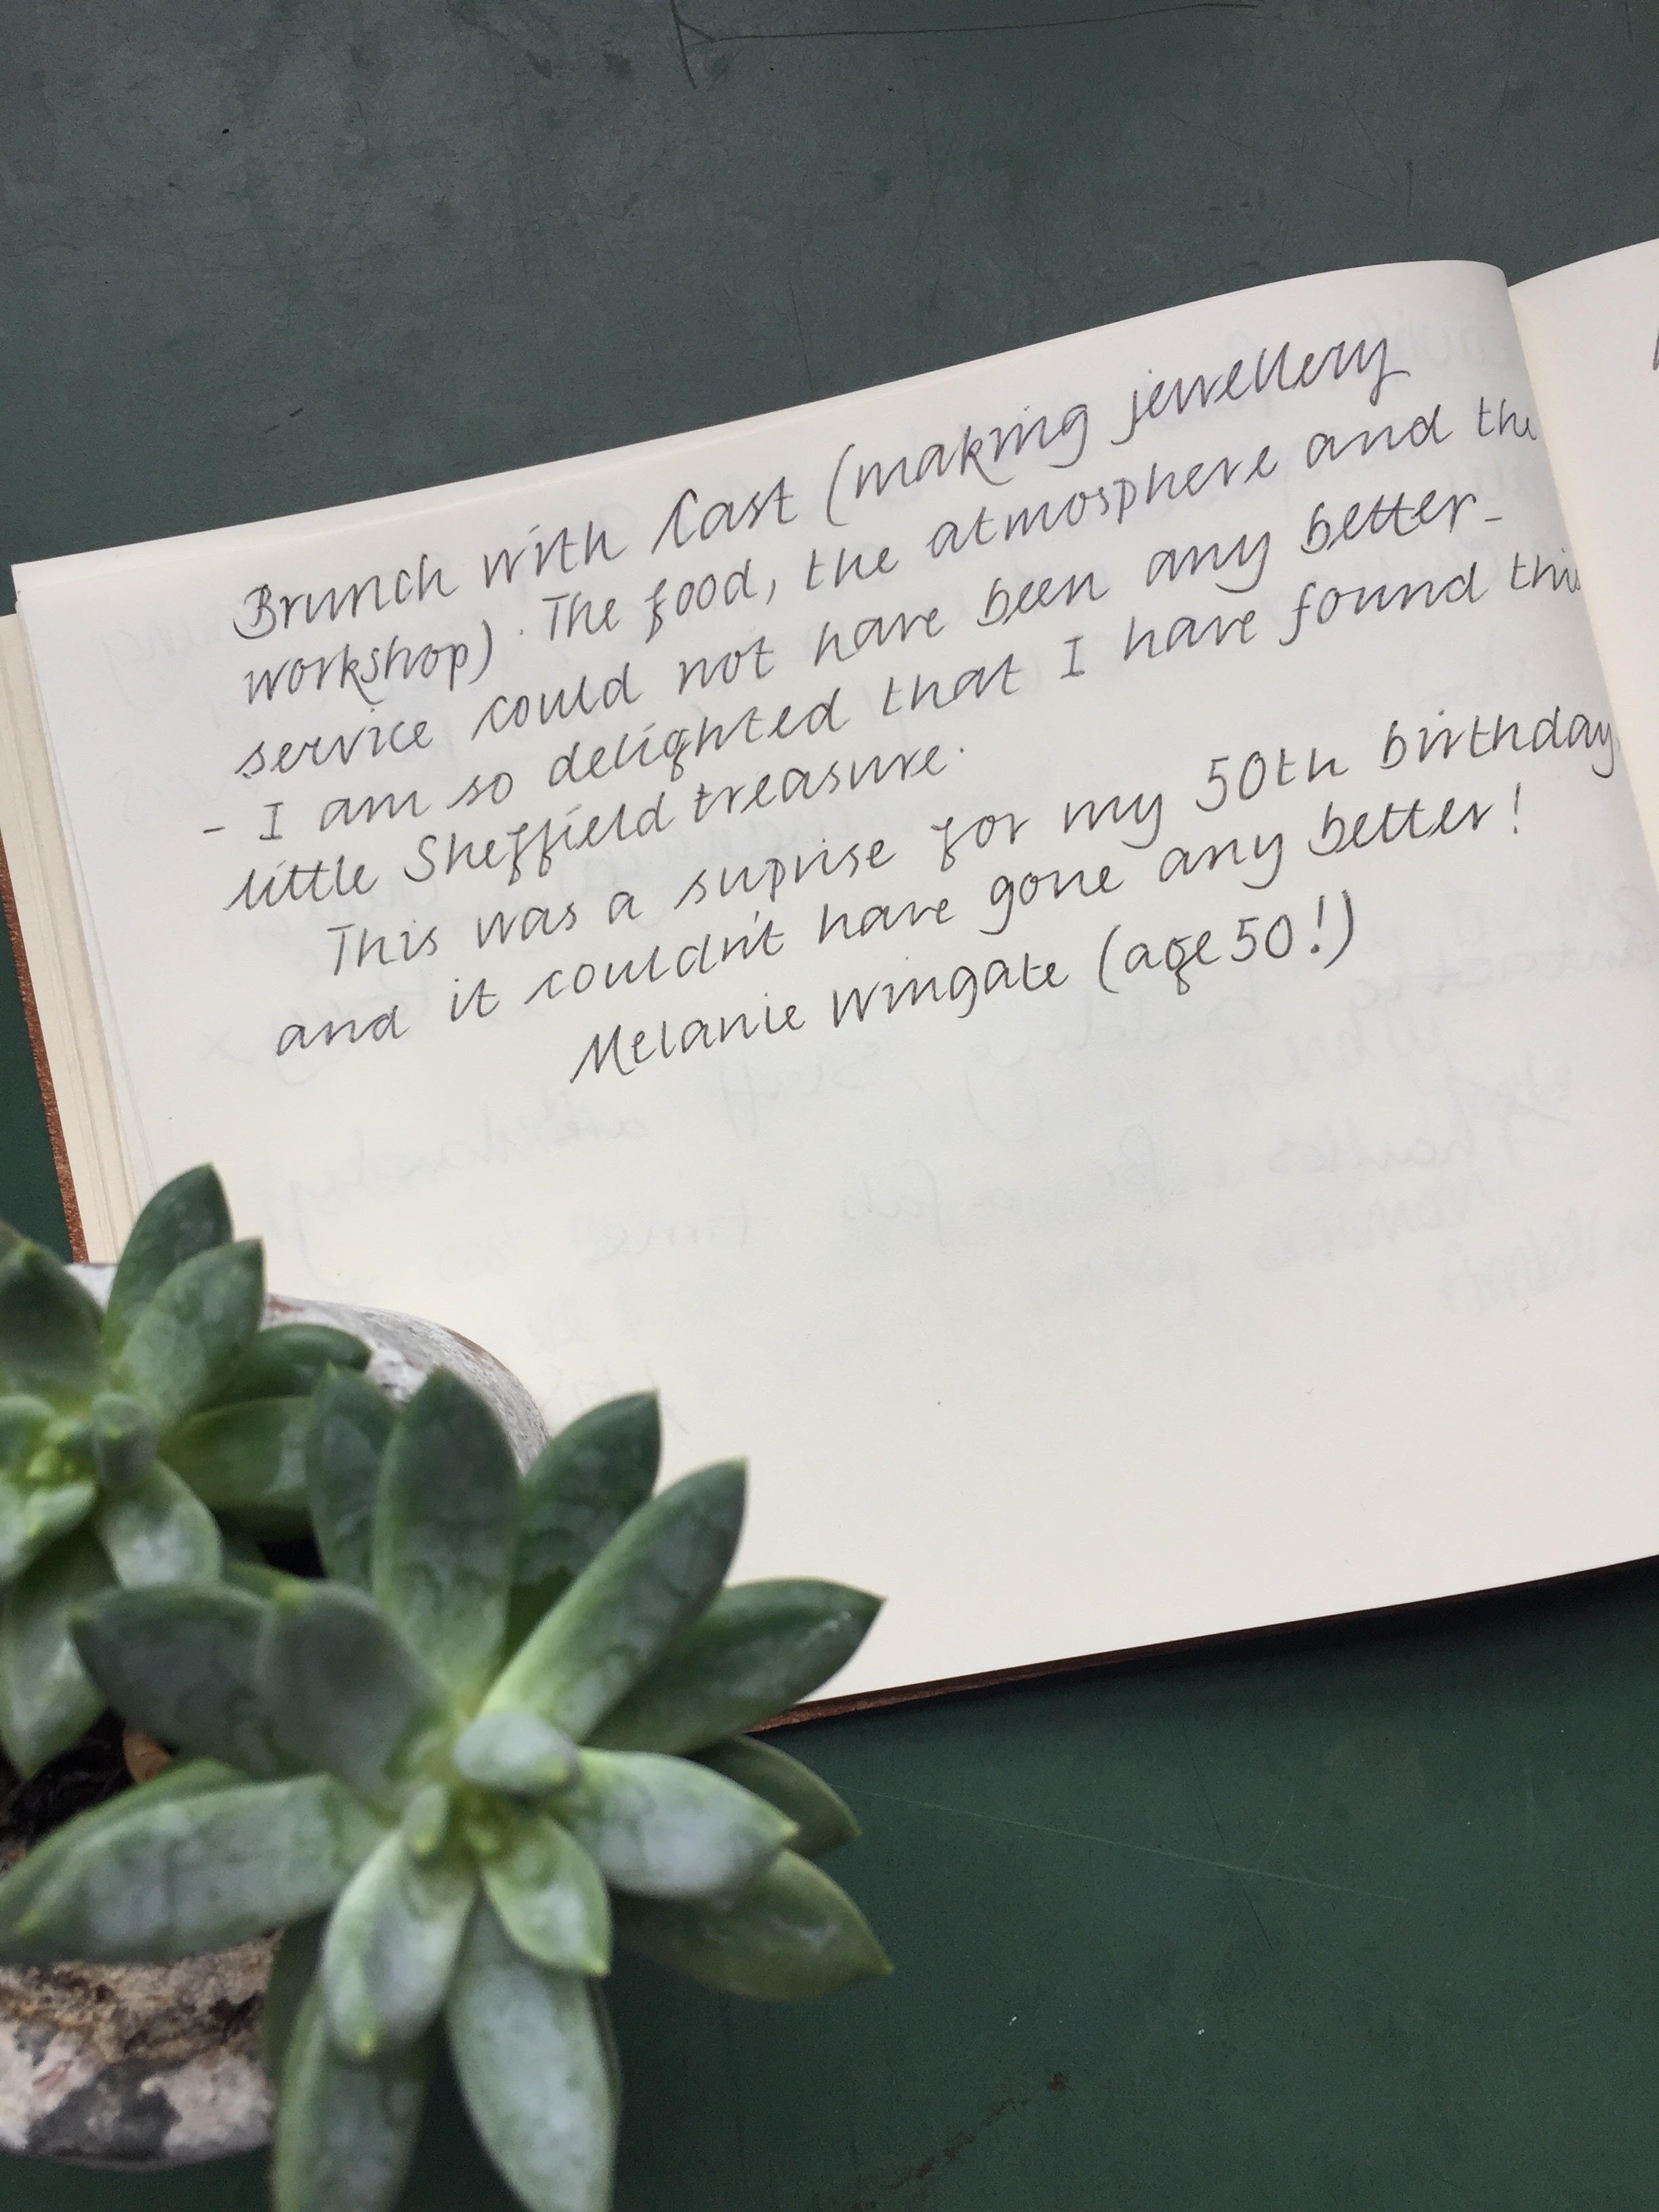 Brunch with Cast (making jewellery
workshop). The food, the atmosphere and the
service could not have been any better -
- I am so delighted that I have found this
little Sheffield treasure.
This was a suprise for my 50th birthday
and it couldn't have gone any better!
Melanie Wingate (age 50!)